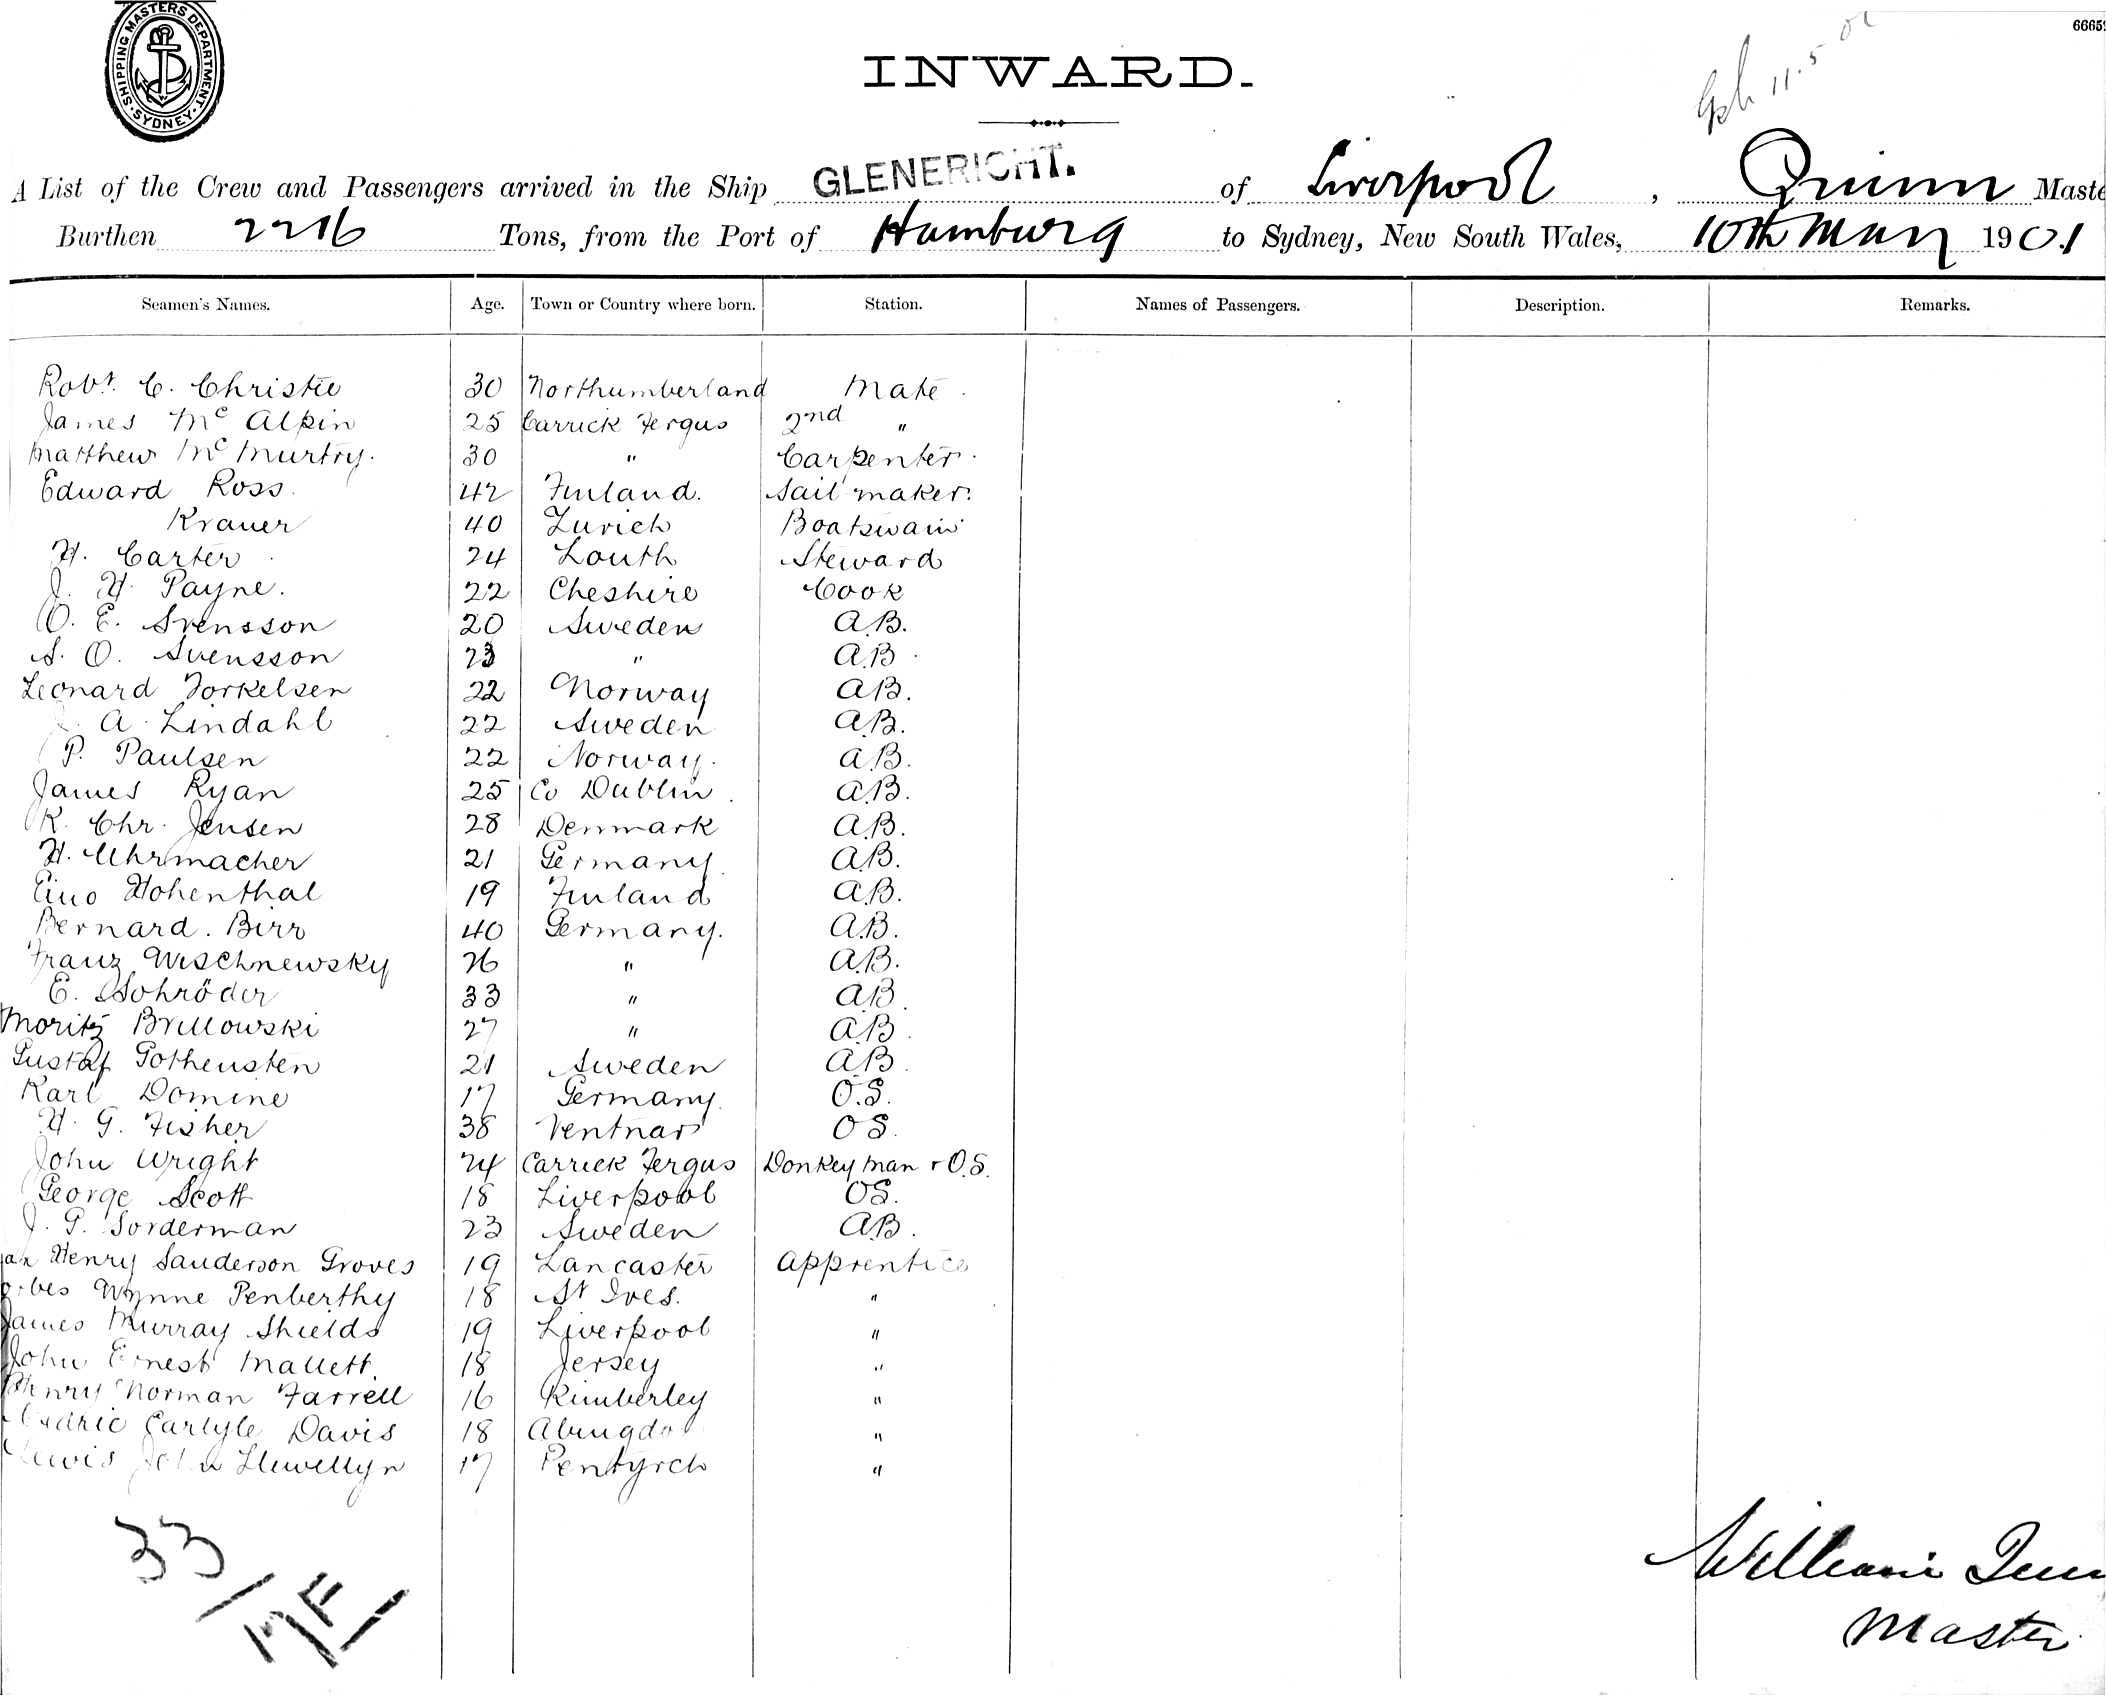 SHIPPING MASTERS DEPARTMENT
SYDNEY
6665
11.5 01
INWARD.
A List of the Crew and Passengers arrived in the Ship GLENERICHT. of Liverpool, Quinn Maste
Burthen 2216 Tons, from the Port of Hamburg to Sydney, New South Wales, 10th May 1901
Seamen's Names. Age. Town or Country where born. Station. Names of Passengers. Description. Remarks.
Robt. C. Christie 30 Northumberland Mate
James Mc Alpin 25 Carrick Fergus 2nd "
Matthew Mc Murtry. 30 " Carpenter
Edward Ross 42 Finland. Sail maker.
Krauer 40 Zurich Boatswain
H. Carter 24 Louth Steward
J. H. Payne. 22 Cheshire Cook
O. E. Svensson 20 Sweden A.B.
S. O. Svensson 23 " A.B.
Leonard Torkelsen 22 Norway A.B.
A. Lindahl 22 Sweden A.B.
P. Paulsen 22 Norway. A.B.
James Ryan 25 Co Dublin A.B.
K. Chr. Jensen 28 Denmark A.B.
H. Uhrmacher 21 Germany A.B.
Eino Hohenthal 19 Finland A.B.
Bernard. Birr 40 Germany. A.B.
Franz Wischnewsky 26 " A.B.
E. Schröder 33 " A.B.
Moritz Brillowski 27 " A.B.
Gustaf Gothensten 21 Sweden A.B.
Karl Domine 17 Germany O.S.
H. G. Fisher 38 Ventnar O.S.
John Wright 24 Carrick Fergus Donkeyman & O.S.
George Scott 18 Liverpool O.S.
J. G. Sorderman 23 Sweden A.B.
Henry Sanderson Groves 19 Lancaster Apprentice
Wynne Penberthy 18 St Ives. "
James Murray Shields 19 Liverpool "
John Ernest Mallett. 18 Jersey "
Henry Norman Farrell 16 Kimberley "
Cedric Carlyle Davis 18 Abingdo "
Lewis John Llewellyn 17 Pentyrch "
33
William Quin
Master